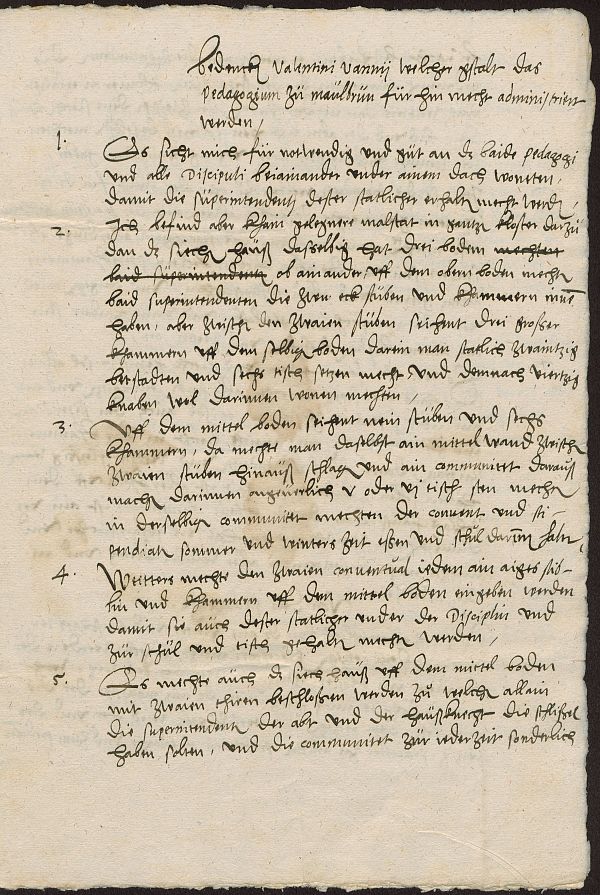 Bedenckh Valentini Vannij welcher gstalt das
Pedagogium zu Maulbrun fürhin mecht administriert
werden /
1. Es sicht mich für notwendig und gut an dz baide pedagogi
und alle Discipuli beiainander under ainem dach woneten,
damit die superintendentz dester statlicher erhalten mecht werden /
2. Ich befind aber khain gelegnere malstat in gantzem kloster darzu
dan dz siechen hauß dasselbig hat drei boden mechten
baid superintendenten ob ainander uff dem obern boden mechten
baid superintendenten die zwu eck stuben und khammern innen
haben, aber zwischen den zwaien stuben seihent drei grosser
khammern uff dem selbigen boden darein man statlich zwaintzig
betstadten und sechs tisch setzen mecht und demnach viertzig
knaben wol darinnen wonen mechten /
3. Uff dem mittel boden seihent nein stuben und sechs
khammern, da mechte man daselbst ain mittel wand zwischen
zwaien stuben hinauß schlagen und ain communitet darauß
machen darinnen ungeverlich v oder vj tisch sten mechten
in derselbigen communitet mechten der convent und sti-
pendiaten sommer und winters zeit essen und schul darinn halten,
4. Weitters mechte den zwaien conventual iedem ain aigen stib-
lin und khammern uff dem mittel boden eingeben werden
damit sie auch dester statlicher under der Disciplin und
zur schul und tisch gehalten mechten werden /
5. Es mechte auch dz siechhauß uff dem mittel boden
mit zwaien thiren beschlossen werden zu welchen allain
die superintendenten der abt und der haußknecht die schlissel
haben solten, und die communitet zur iederzeit sonderlich